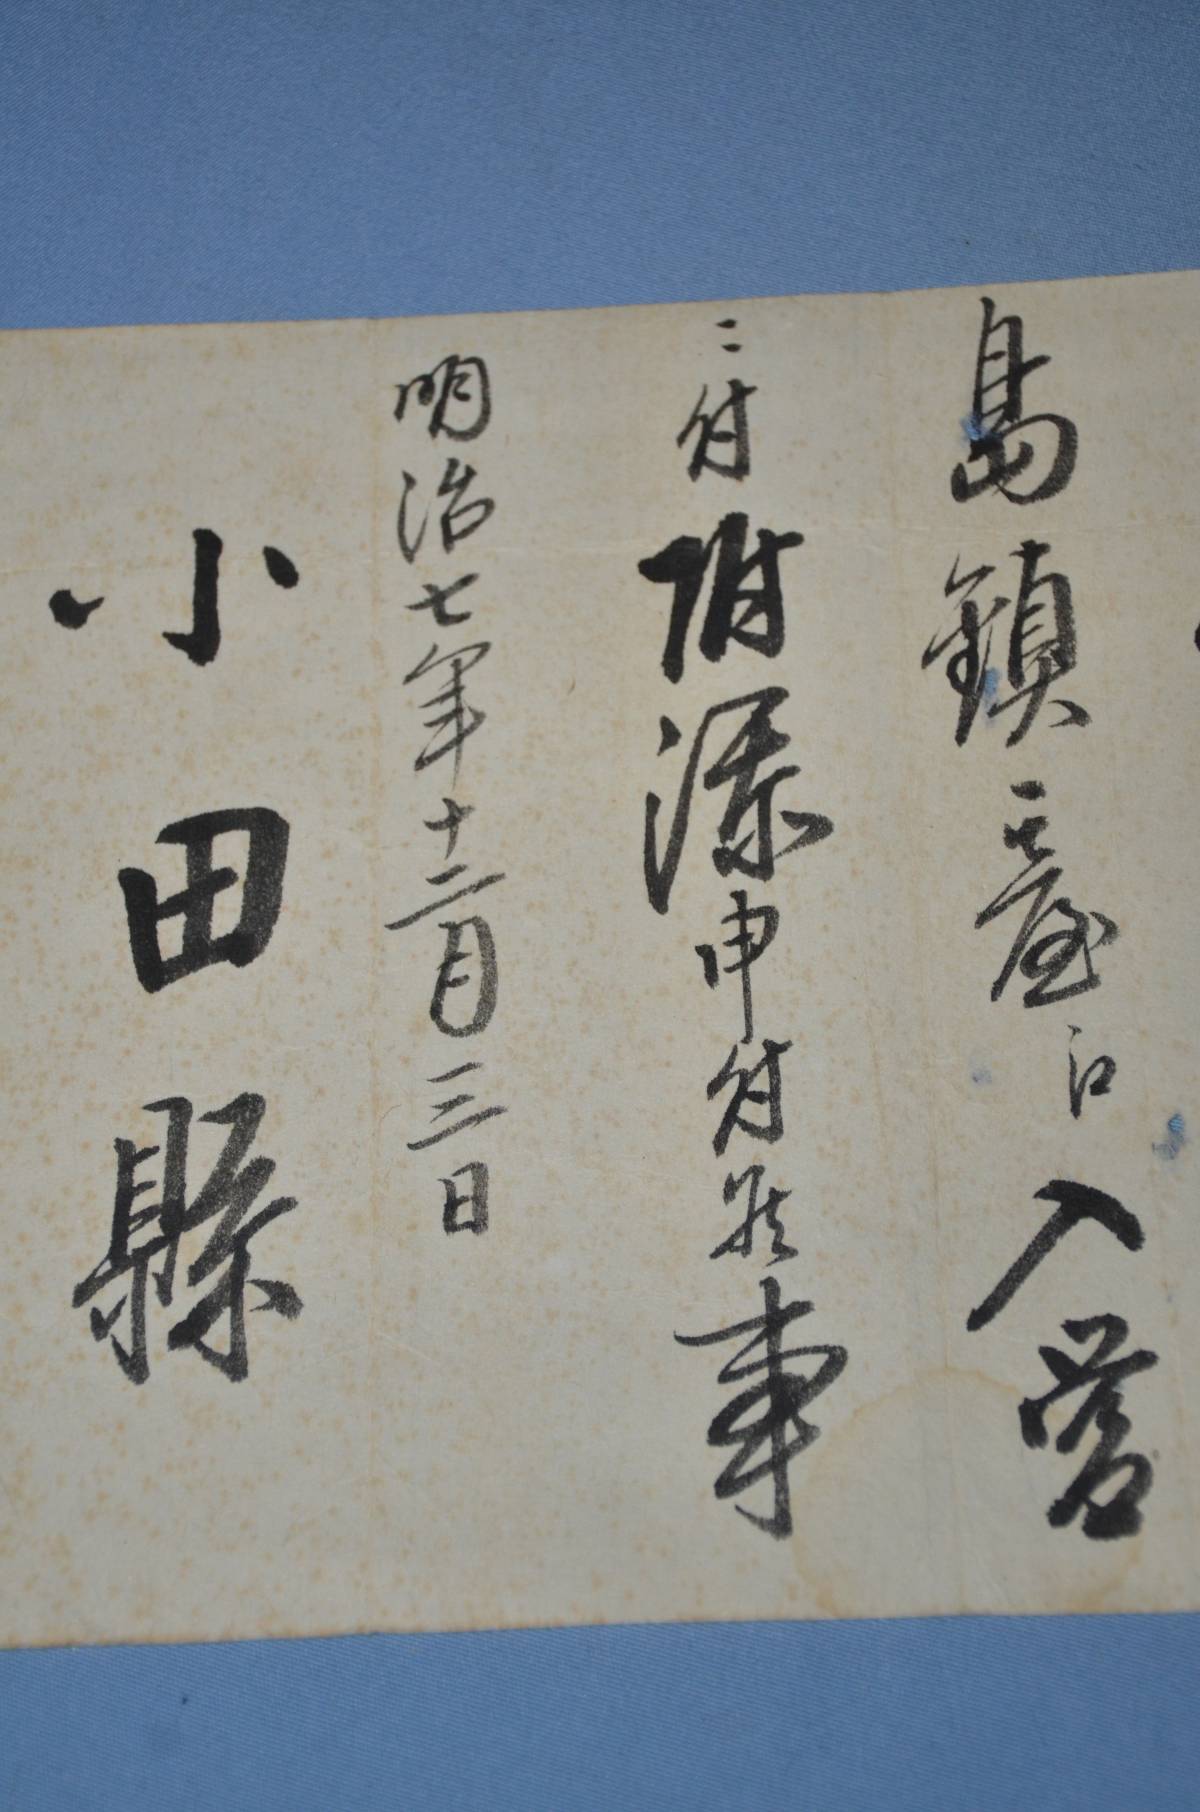 島鎮臺江入營
ニ付附添申付候事
明治七年十二月三日
小田縣